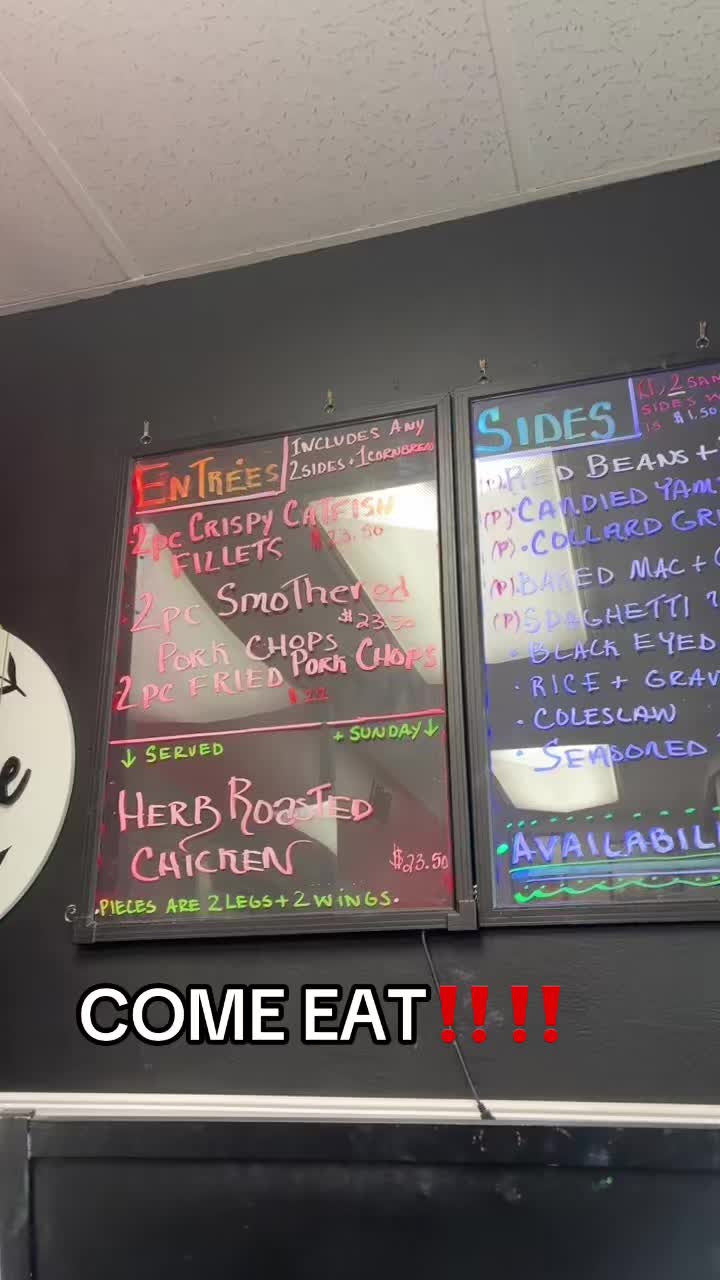 ENTREÉS
INCLUDES ANY
2SIDES + 1CORNBREAD
2pc CRISPY CATFISH
FILLETS $23.50
2pc SMOTHERED
$23.50
PORK CHOPS
2pc FRIED PORK CHOPS
$22
↓ SERVED + SUNDAY ↓
HERB ROASTED
CHICKEN $23.50
•PIECES ARE 2 LEGS + 2 WINGS•
SIDES
2 SAM
SIDES W
IS $1.50
RED BEANS +
(P)•CANDIED YAM
(P)•COLLARD GR
(P)•BAKED MAC +
(P)SPAGHETTI
• BLACK EYED
• RICE + GRAV
• COLESLAW
• SEASONED
•AVAILABIL
e
COME EAT‼️‼️